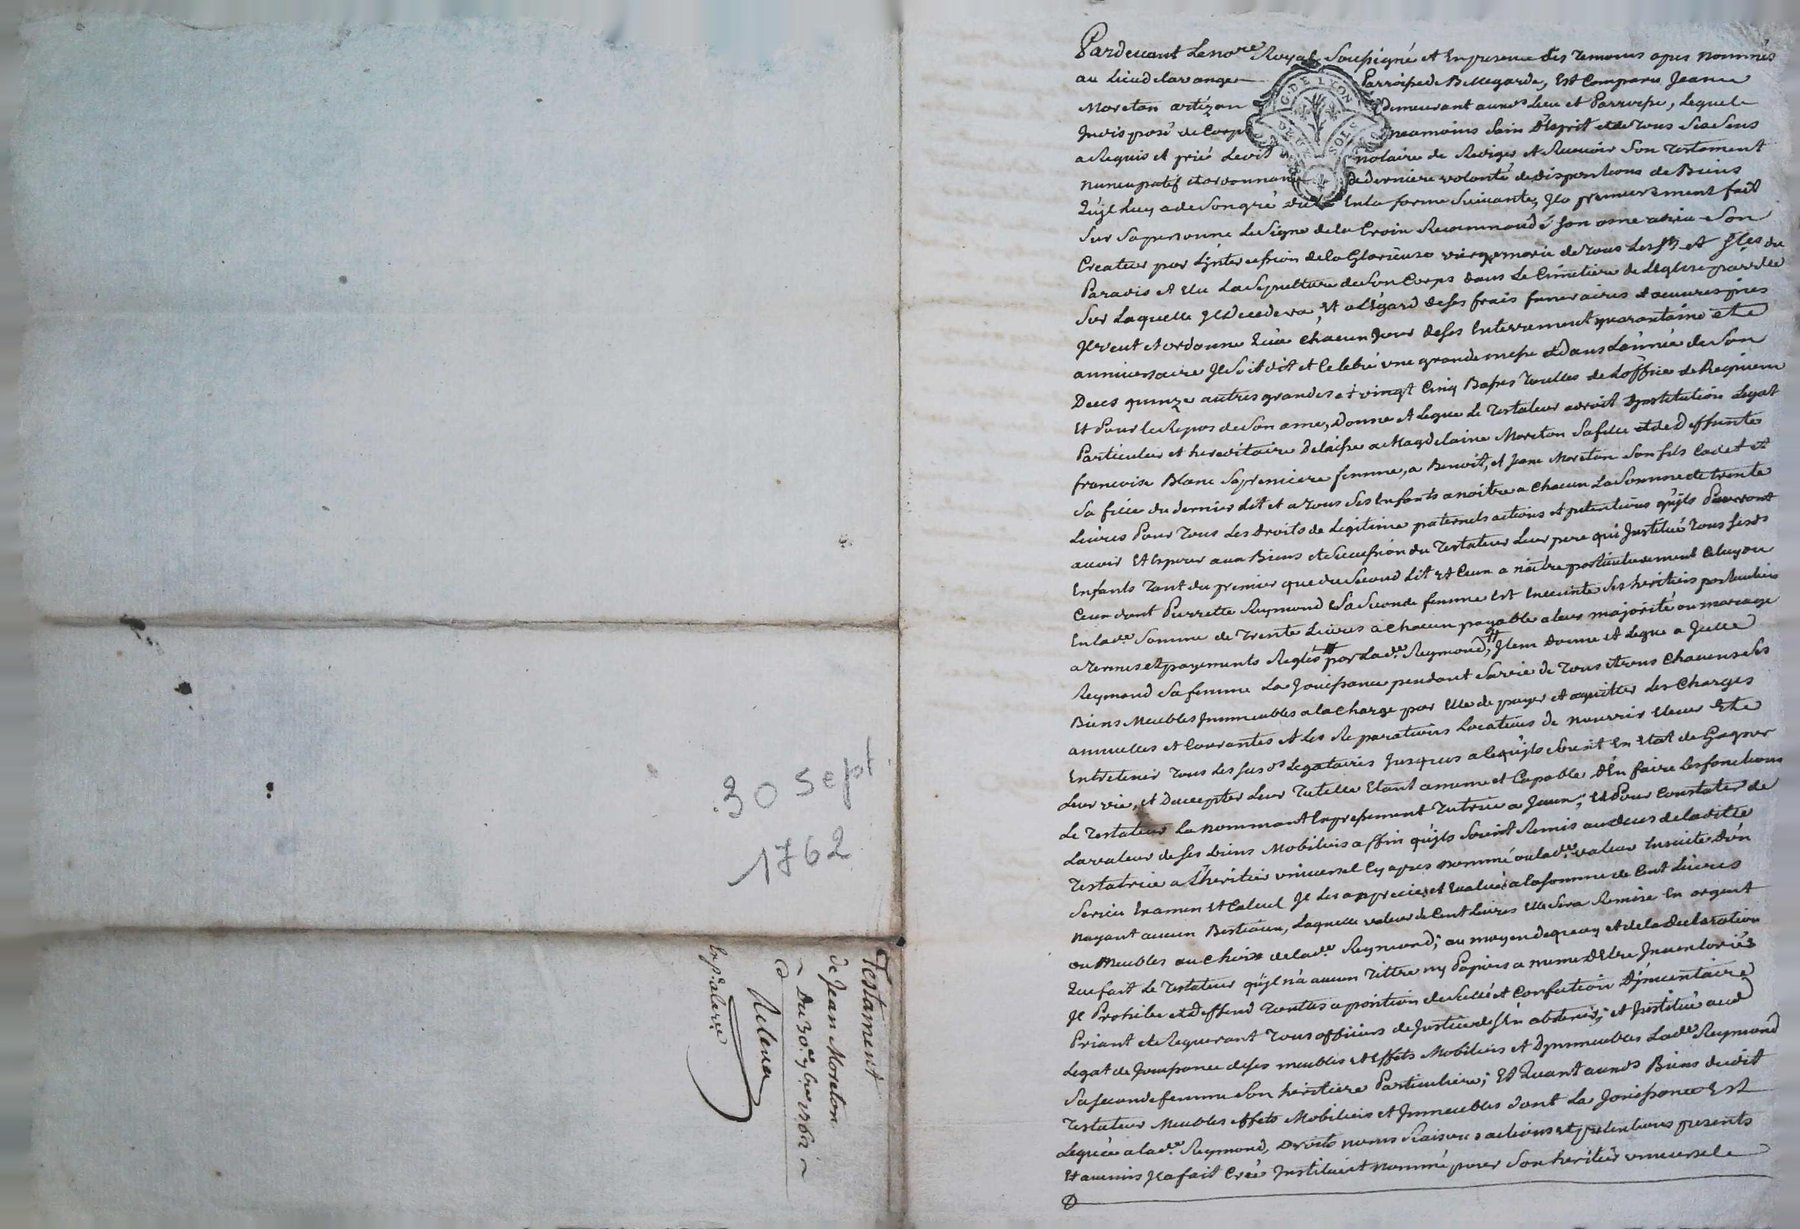 30 sept
1762
Testament
de Jean Moreton
Du 30e 7bre 1762
Pardevant Le nore Royal Soussigné et En presence des temoins apres nommés
au Lieu de la range Parroisse de Bellegarde, Est Comparu Jean
G. DE LYON
DEUX SOLS
Moreton artizan demeurant aud. Lieu et Parroisse, Lequel
Indisposé de Corps neamoins Sain d'Esprit et de tous Ses Sens
a Requis et prié Ledit notaire de Rediger et Recevoir Son testament
nuncupatif et ordonnance de derniere volonté et dispositions de Biens
qu'il luy a de Son gré dicté En la forme Suivante, Il a premierement fait
Sur Sa personne Le Signe de la Croix Recommandé Son ame a Dieu Son
Createur par L'intercession de la Glorieuse vierge marie de tous Les Sts et Stes du
Paradis et Elu La Sepulture de Son Corps dans Le Cimetiere de L'eglise parr.lle
Sur Laquelle Il decedera, Et a L'egard de Ses frais funeraires et oeuvres pies
Il veut et ordonne qu'a Chacun Jour de Ses Enterrement quarantaine et
anniversaire Il Soit dit et Celebré une grande messe et dans L'année de Son
Deces quinze autres grandes et vingt Cinq Basses toutes de L'office de Requiem
Et Pour le Repos de Son ame, Donne et Legue Le Testateur a droit d'institution Legat
Particulier et hereditaire delaisse a Magdelaine Moreton Sa fille et de deffunte
francoise Blanc Sa premiere femme, a Benoit, et Jean Moreton Son fils Cadet et
Sa fille du dernier lit et a tous Ses Enfants a naitre a Chacun La Somme de trente
Livres Pour tous Les droits de Legitime paternels actions et pretentions qu'ils Pourront
avoir Et Esperer aux Biens et Succession du Testateur Leur pere qui Institue tous Sesds
Enfants tant du premier que du Second lit et Ceux a naitre particulierement Celuy ou
Ceux dont Pierrette Reymond Sa Seconde femme Est Enceinte Ses heritiers particuliers
En lade Somme de Trente Livres a Chacun payable a leur majorité ou mariage
a termes et payements Reglés par Lade Reymond, Item donne et Legue a Jelle
Reymond Sa femme La Jouissance pendant Sa vie de tous et uns Chacuns Ses
Biens Meubles Immeubles a la Charge par Elle de payer et aquitter Les Charges
annuelles et Courantes et Les Reparations Locatives de nourrir vetir Et
Entretenir tous Les Susds Legataires Jusques a Ce qu'ils Soient En Etat de Gagner
Leur vie, et D'accepter Leur Tutelle Etant amme et Capable d'En faire Les fonctions
Le Testateur La nommant Expressement Tutrice a Iceux; Et Pour Constater de
La valeur de Ses biens Mobiliers affin qu'ils Soient Remis au deces de la ditte
Testatrice a L'heritier universel Cy apres nommé ou lade valeur Ensuite d'un
Serieux Examen Et Calcul Il Les apprecie et Evalue a la Somme de Cent Livres
nayant aucun Bestiaux, Laquelle valeur de Cent Livres Elle Sera Remise En argent
ou Meubles au Choix de lade Reymond; au moyen de quoy et de la declaration
que fait Le Testateur qu'il n'a aucun Tittre ny Papiers a meme d'Etre Inventoriés
Il Prohibe et deffend toutes aposition de Scellé et Confection d'Inventaire
Priant et Requerant tous officiers de Justice de S'En abstenir; et Institue aud
Legat de Jouissance de Ses meubles et Effets Mobiliers et d'Immeubles Lade Reymond
Sa Seconde femme Son heritiere Particuliere; Et Quant auxds Biens dudit
Testateur Meubles effets Mobiliers et Immeubles dont La Jouissance Est
Leguée a lade Reymond, Droits noms Raisons actions et pretentions presents
Et avenir Il a fait Créé Institué et nommé pour Son heritier universel